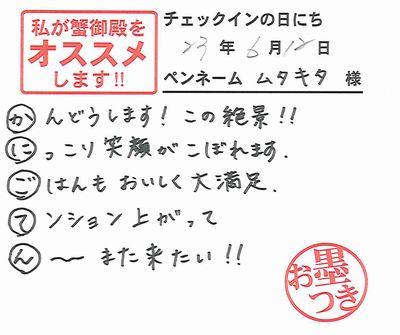 私が蟹御殿を
オススメ
します!!
チェックインの日にち
23年6月12日
ペンネーム ムタキタ 様
かんどうします! この絶景!!
にっこり笑顔がこぼれます.
ごはんもおいしく大満足.
てンション上がって
ん〜また来たい!!
お墨つき